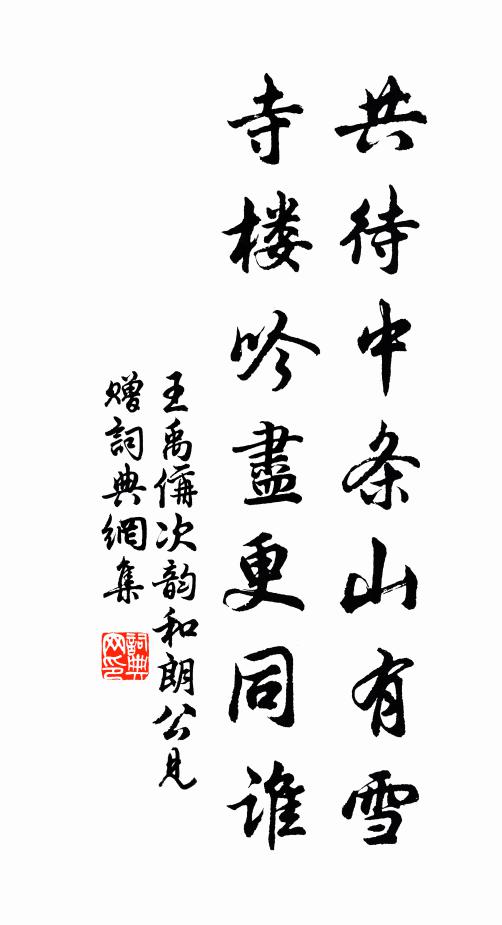 共待中条山有雪
寺楼吟盡更同誰
王禹偁次韵和朗公見
赠詞典網集
詞典网印